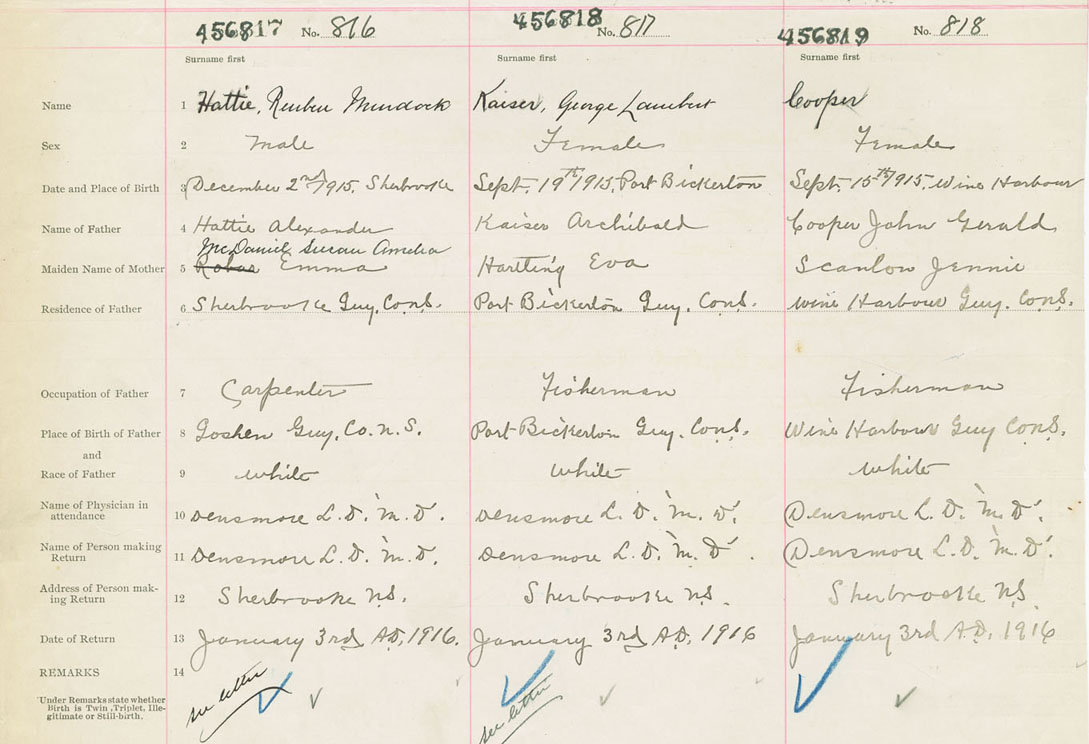 456817 No. 816 456818 No. 817 456819 No. 818
Surname first Surname first Surname first
Name 1 Hattie, Reuben Murdock Kaiser, George Lambert Cooper
Sex 2 Male Female Female
Date and Place of Birth 3 December 2nd/1915, Sherbrooke Sept. 19th/1915, Port Bickerton Sept. 15th/1915, Wine Harbour
Name of Father 4 Hattie Alexander Kaiser Archibald Cooper John Gerald
McDaniel Susan Amelia
Maiden Name of Mother 5 Emma Hartling Eva Scanlon Jennie
Residence of Father 6 Sherbrooke Guy. Co. N.S. Port Bickerton Guy. Co. N.S. Wine Harbour Guy. Co. N.S.
Occupation of Father 7 Carpenter Fisherman Fisherman
Place of Birth of Father 8 Goshen Guy. Co. N.S. Port Bickerton Guy. Co. N.S. Wine Harbour Guy Co. N.S.
and
Race of Father 9 White White White
Name of Physician in
attendance 10 Densmore L. D. M. D. Densmore L. D. M. D. Densmore L. D. M. D.
Name of Person making
Return 11 Densmore L. D. M. D. Densmore L. D. M. D. Densmore L. D. M. D.
Address of Person mak-
ing Return 12 Sherbrooke N.S. Sherbrooke N.S. Sherbrooke N.S.
Date of Return 13 January 3rd A.D. 1916. January 3rd A.D. 1916 January 3rd A.D. 1916
REMARKS 14
see letter see letter
Under Remarks state whether
Birth is Twin, Triplet, Ille-
gitimate or Still-birth.